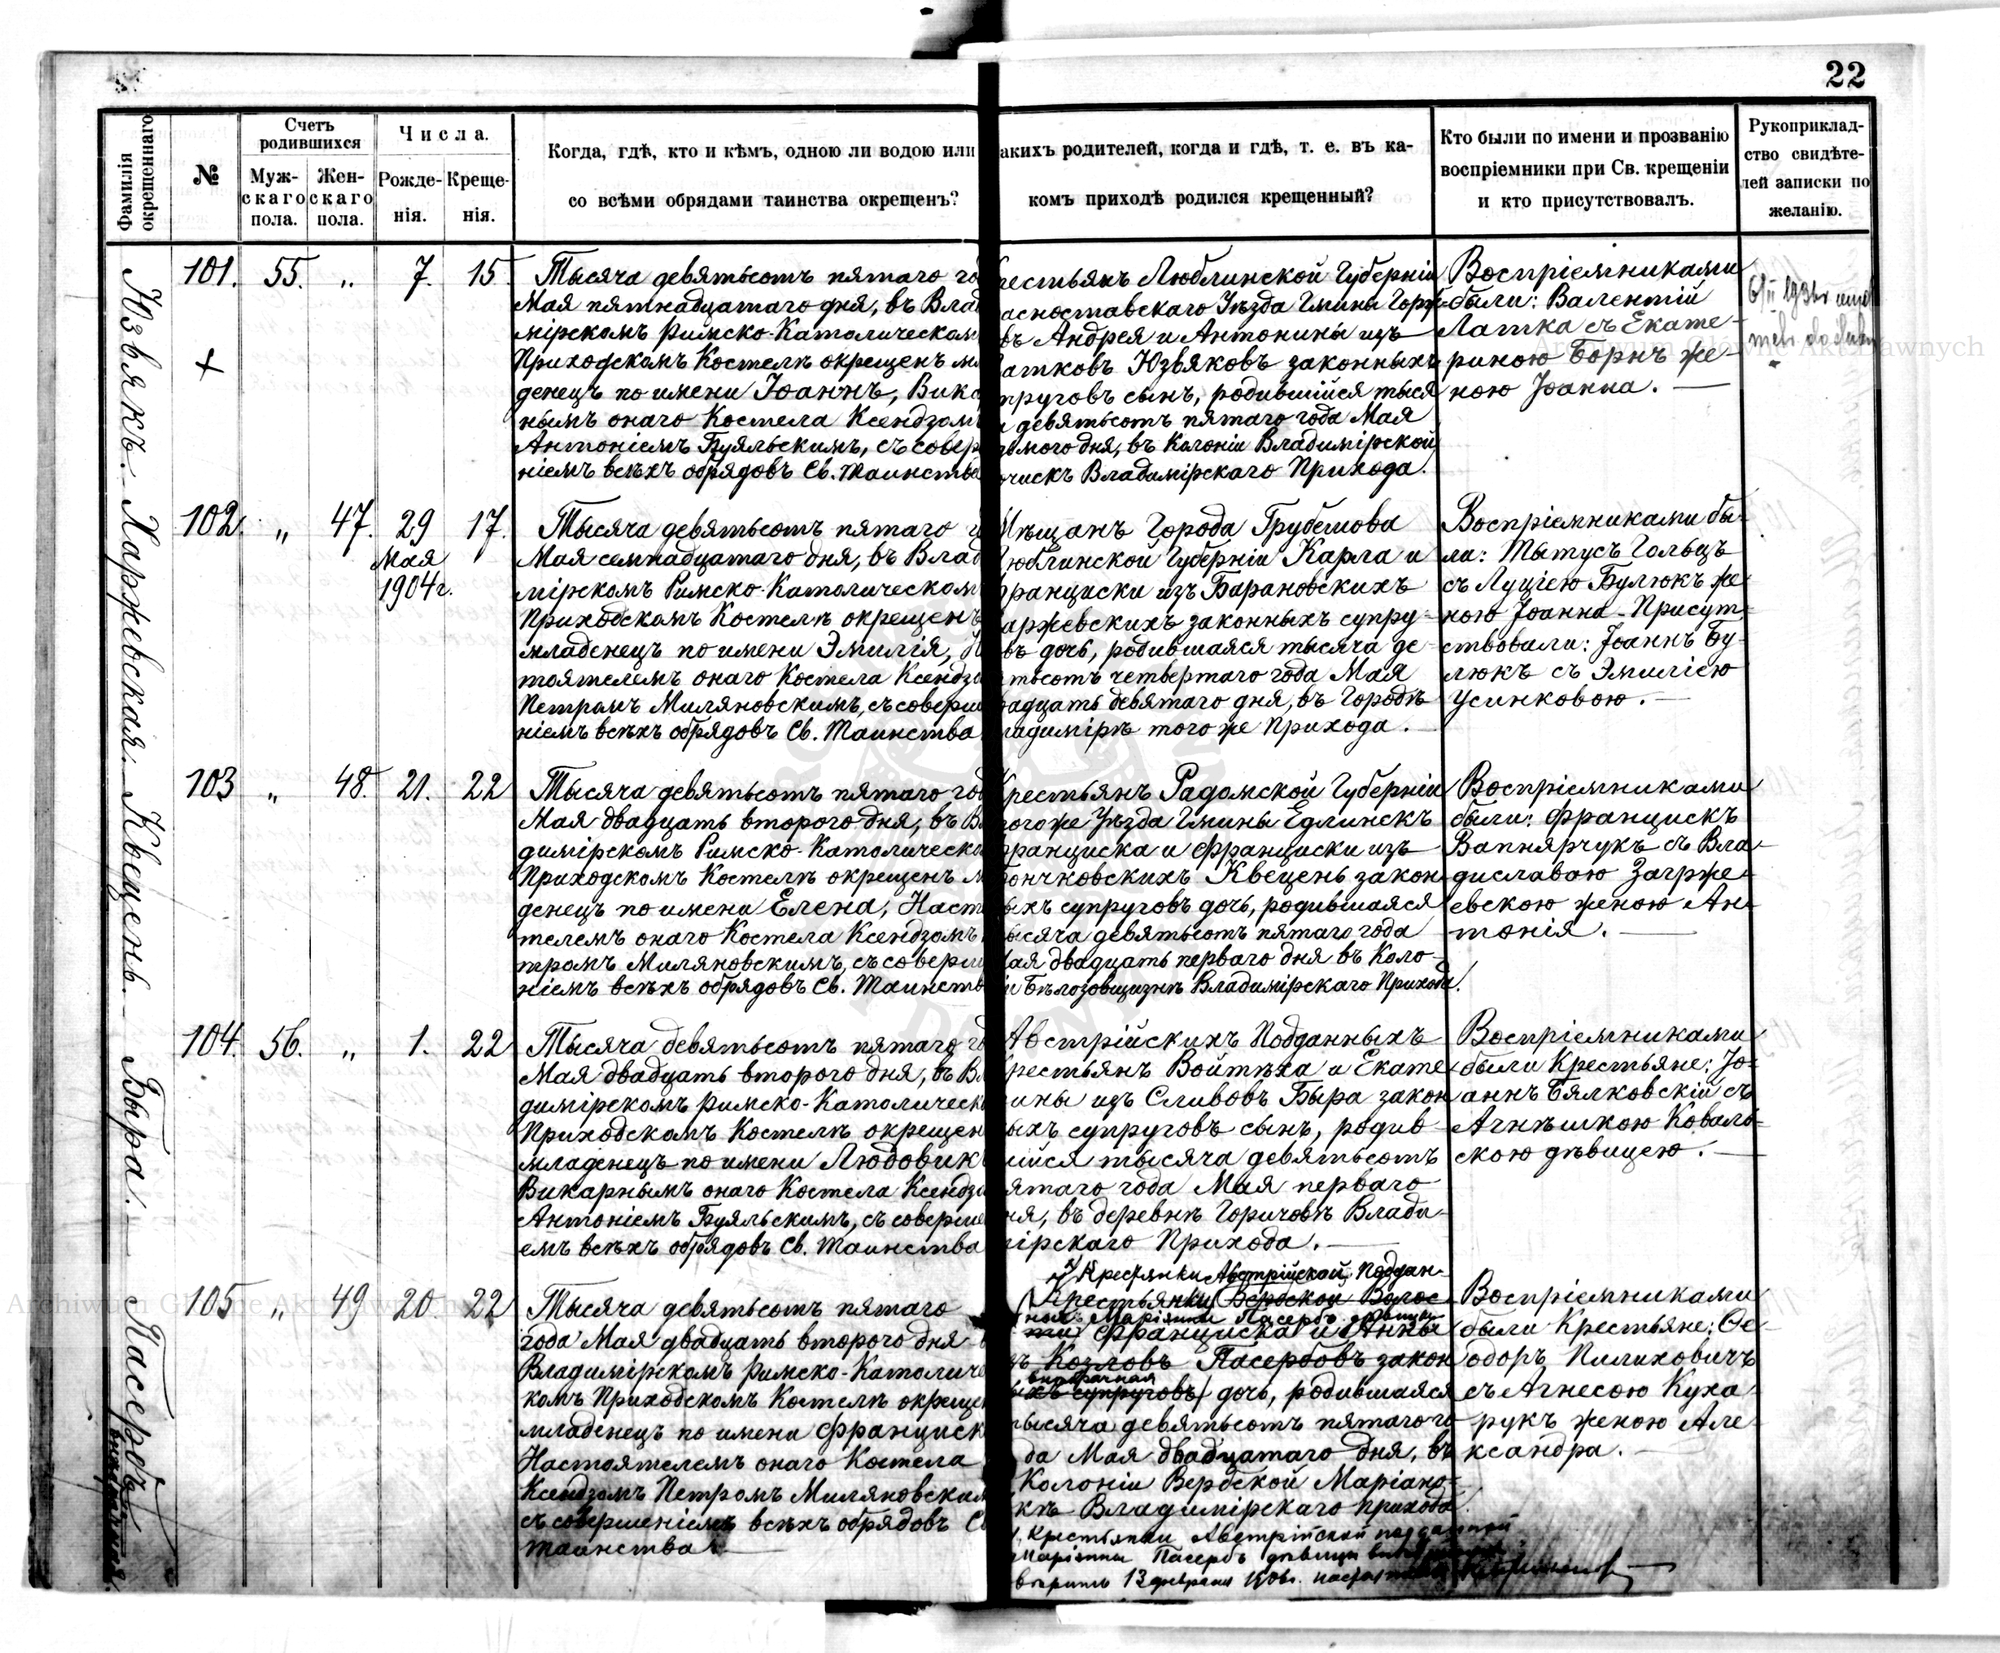 22
Фамилія окрещеннаго
№
Счетъ родившихся
Муж-скаго пола.
Жен-скаго пола.
Числа.
Рожде-нія.
Креще-нія.
Когда, гдѣ, кто и кѣмъ, одною ли водою или
со всѣми обрядами таинства окрещенъ?
акихъ родителей, когда и гдѣ, т. е. въ ка-
комъ приходѣ родился крещенный?
Кто были по имени и прозванію
воспріемники при Св. крещеніи
и кто присутствовалъ.
Рукоприклад-
ство свидѣте-
лей записки по
желанію.
Юзвякъ.
101. 55. „ 7. 15.
Тысяча девятьсотъ пятаго го
Мая пятнадцатаго дня, въ Влад
мірскомъ Римско-Католическом
Приходскомъ Костелѣ окрещенъ мл
денецъ по имени Іоаннъ, Вика
нымъ онаго Костела Ксендзом
Антоніемъ Буяльскимъ, съ совер
ніемъ всѣхъ обрядовъ Св. Таинства
рестьянъ Люблинской Губерніи
асноставскаго Уѣзда Гмины Горж-
въ Андрея и Антонины изъ
атковъ Юзвяковъ законныхъ
пруговъ сынъ, родившійся тыся
а девятьсотъ пятаго года Мая
едьмого дня, въ Колоніи Владимірской
очискъ Владимірскаго Прихода.
Воспріемниками
были: Валентій
Латка съ Екате-
риною Борнъ же-
ною Іоанна.
Харжевская.
102. „ 47. 29 Мая 1904г. 17.
Тысяча девятьсотъ пятаго г
Мая семнадцатаго дня, въ Влад
мірскомъ Римско-Католическом
Приходскомъ Костелѣ окрещенъ
младенецъ по имени Эмилія, Н
тоятелемъ онаго Костела Ксендзо
Петромъ Миляновскимъ, съ соверш
ніемъ всѣхъ обрядовъ Св. Таинства
Мѣщанъ Города Грубешова
Люблинской Губерніи Карла и
Франциски изъ Барановскихъ
аржевскихъ законныхъ супру-
въ дочь, родившаяся тысяча де-
тьсотъ четвертаго года Мая
вадцать девятаго дня, въ Городѣ
ладимірѣ того же Прихода.
Воспріемниками бы-
ли: Тытусъ Гольцъ
съ Луціею Булюкъ же-
ною Іоанна - Присут-
ствовали: Іоаннъ Бу-
люкъ съ Эмиліею
Усинковою.
Квецень.
103 „ 48. 21. 22
Тысяча девятьсотъ пятаго год
Мая двадцать второго дня, въ Вл
димірскомъ Римско-Католическо
Приходскомъ Костелѣ окрещенъ м
денецъ по имени Елена, Насто
телемъ онаго Костела Ксендзомъ
тромъ Миляновскимъ, съ соверш
ніемъ всѣхъ обрядовъ Св. Таинств
Крестьянъ Радомской Губерніи
того же Уѣзда Гмины Едлинскъ
Франциска и Франциски изъ
ончковскихъ Квецень закон-
ыхъ супруговъ дочь, родившаяся
ысяча девятьсотъ пятаго года
Мая двадцать перваго дня въ Коло-
іи Бѣлозовщизнѣ Владимірскаго Прихода.
Воспріемниками
были: Францискъ
Вапнярчукъ съ Вла-
диславою Загрже-
евскою женою Ан-
тонія.
Быра.
104. 56. „ 1. 22
Тысяча девятьсотъ пятаго го
Мая двадцать второго дня, въ Вл
димірскомъ Римско-Католическ
Приходскомъ Костелѣ окрещен
младенецъ по имени Людовикъ
Викарнымъ онаго Костела Ксендзо
Антоніемъ Буяльскимъ, съ соверше
емъ всѣхъ обрядовъ Св. Таинства
Австрійскихъ Подданныхъ
рестьянъ Войтѣха и Екате-
ины изъ Сливовъ Быра закон-
ыхъ супруговъ сынъ, родив-
ійся тысяча девятьсотъ
ятаго года Мая перваго
ня, въ деревнѣ Горичовѣ Влади-
мірскаго Прихода.
Воспріемниками
были Крестьяне: Іо-
аннъ Бялковскій съ
Агнѣшкою Коваль-
скою дѣвицею.
Пасербъ
внѣбрачная.
105 „ 49 20. 22
Тысяча девятьсотъ пятаго
года Мая двадцать второго дня
Владимірскомъ Римско-Католиче
комъ Приходскомъ Костелѣ окреще
младенецъ по имени Франциск
Настоятелемъ онаго Костела
Ксендзомъ Петромъ Миляновским
съ совершеніемъ всѣхъ обрядовъ С
Таинства.
Крестянки Австрійской Поддан-
Крестьянки Вербской Волос-
ной Маріянны Пасербъ дѣвицы
ти Франциска и Анны
изъ Козловъ Пасербовъ закон
внѣбрачная
ыхъ супруговъ дочь, родившаяся
тысяча девятьсотъ пятаго го-
да Мая двадцатаго дня, въ
Колоніи Вербской Маріано-
кѣ Владимірскаго Прихода.
Крестьянки Австрійской подданной
Маріянны Пасербъ дѣвицы
вѣрить 13 февраля
Воспріемниками
были Крестьяне: Ѳе-
одоръ Пилиховичъ
съ Агнесою Куха-
рукъ женою Але-
ксандра.
Archiwum Główne Akt Dawnych
Archiwum Główne Akt Dawnych